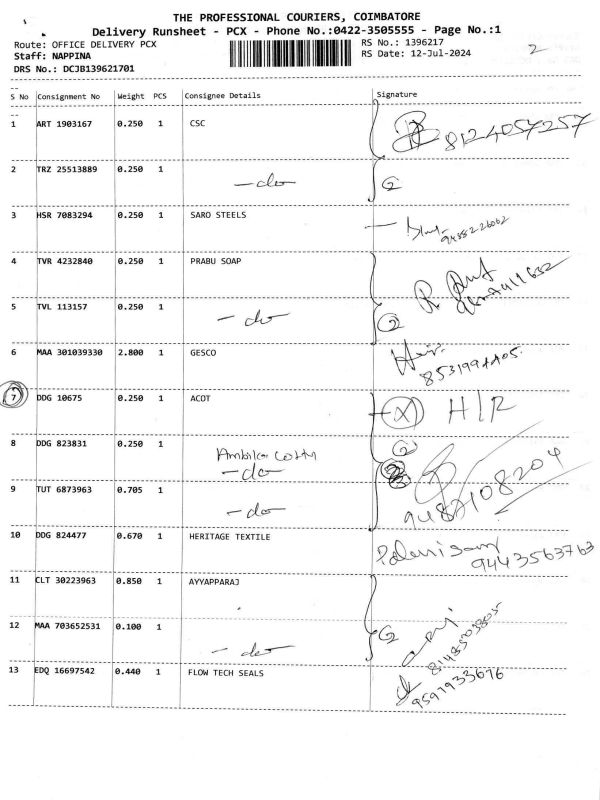 THE PROFESSIONAL COURIERS, COIMBATORE
Delivery Runsheet - PCX - Phone No.:0422-3505555 - Page No.:1
Route: OFFICE DELIVERY PCX RS No.: 1396217
Staff: NAPPINA RS Date: 12-Jul-2024 2
DRS No.: DCJB139621701
S No Consignment No Weight PCS Consignee Details Signature
1 ART 1903167 0.250 1 CSC 8124057257
2 TRZ 25513889 0.250 1 -do- 2
3 HSR 7083294 0.250 1 SARO STEELS 9488226062
4 TVR 4232840 0.250 1 PRABU SOAP
5 TVL 113157 0.250 1 -do- 2
6 MAA 301039330 2.800 1 GESCO
7 DDG 10675 0.250 1 ACOT X H/R
8 DDG 823831 0.250 1 -do- 2
9 TUT 6873963 0.705 1 -do- 9487108204
10 DDG 824477 0.670 1 HERITAGE TEXTILE Palanisamy 9443563763
11 CLT 30223963 0.850 1 AYYAPPARAJ
12 MAA 703652531 0.100 1 -do- 2
13 EDQ 16697542 0.440 1 FLOW TECH SEALS 9597933676